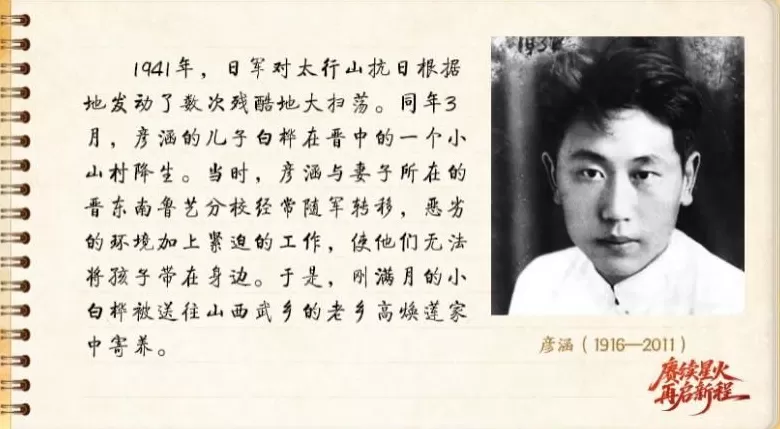 1941年，日军对太行山抗日根据
地发动了数次残酷地大扫荡。同年3
月，彦涵的儿子白桦在晋中的一个小
山村降生。当时，彦涵与妻子所在的
晋东南鲁艺分校经常随军转移，恶劣
的环境加上紧迫的工作，使他们无法
将孩子带在身边。于是，刚满月的小
白桦被送往山西武乡的老乡高焕莲家
中寄养。
193
彦涵（1916—2011）
赓续星火
再启新程